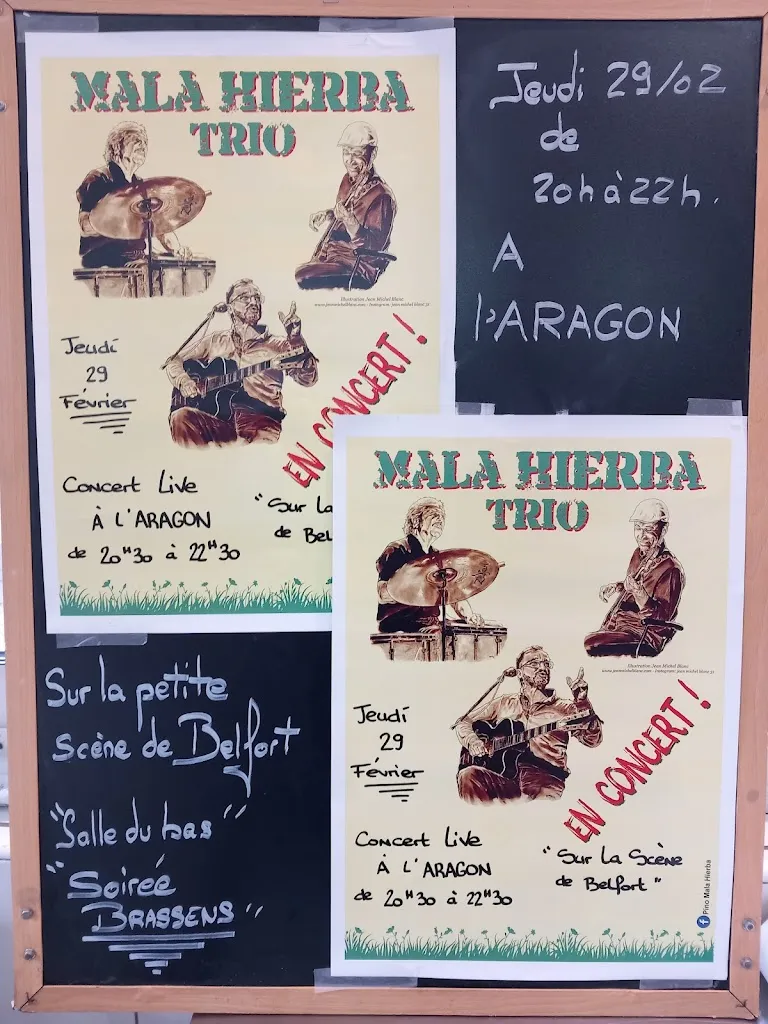 MALA HIERBA
TRIO
Illustration Jean Michel Blanc
Jeudi
29
Février
EN CONCERT !
Concert Live
À L'ARAGON
de 20H30 à 22H30
"Sur La
de Bel
Jeudi 29/02
de
20h à 22h.
A
l'ARAGON
Sur la petite
scène de Belfort
"Salle du bas"
"Soirée
BRASSENS"
MALA HIERBA
TRIO
Illustration Jean Michel Blanc
Jeudi
29
Février
EN CONCERT !
Concert Live
À L'ARAGON
de 20H30 à 22H30
"Sur La Scène
de Belfort"
Pino Mala Hierba